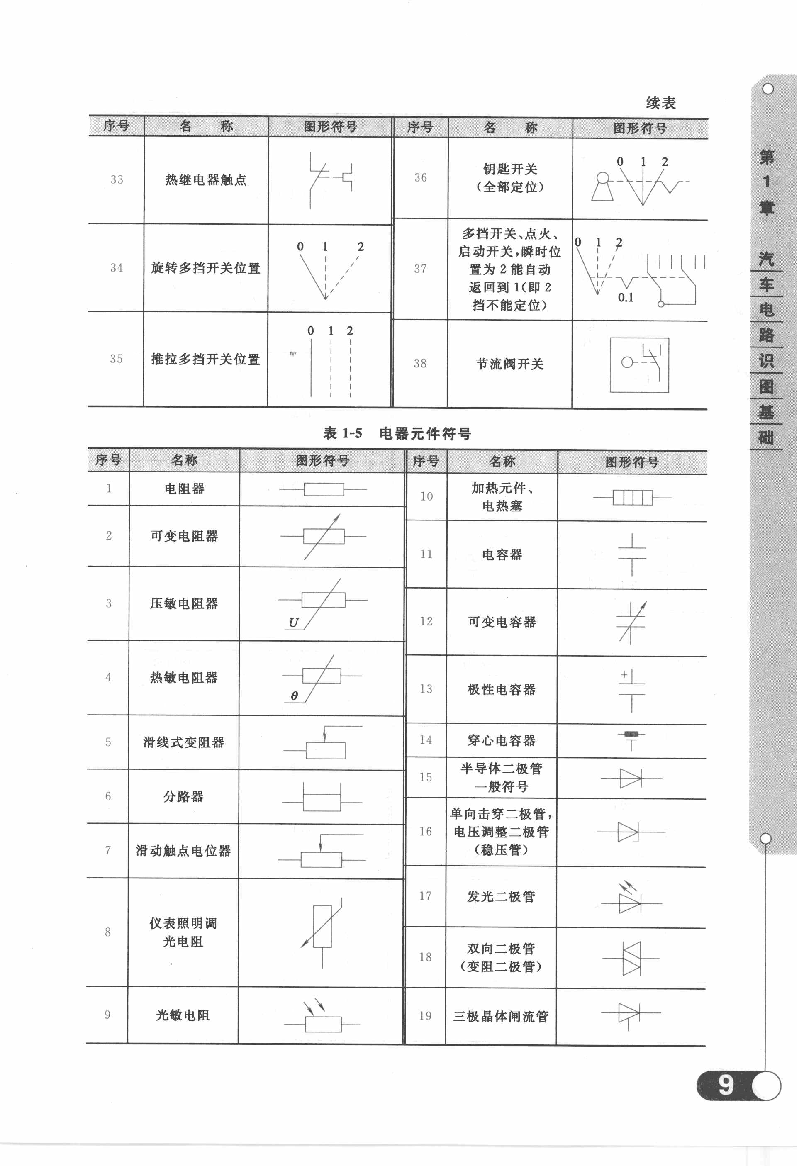 续表
序号 名 称 图形符号 序号 名 称 图形符号
33 热继电器触点
34 旋转多挡开关位置 0 1 2
35 推拉多挡开关位置 0 1 2
36 钥匙开关
(全部定位) 0 1 2
37 多挡开关、点火、
启动开关,瞬时位
置为 2 能自动
返回到 1(即 2
挡不能定位) 0 1 2
0.1
38 节流阀开关
表 1-5 电器元件符号
序号 名称 图形符号 序号 名称 图形符号
1 电阻器
2 可变电阻器
3 压敏电阻器 U
4 热敏电阻器 θ
5 滑线式变阻器
6 分路器
7 滑动触点电位器
8 仪表照明调
光电阻
9 光敏电阻
10 加热元件、
电热塞
11 电容器
12 可变电容器
13 极性电容器 +
14 穿心电容器
15 半导体二极管
一般符号
16 单向击穿二极管,
电压调整二极管
(稳压管)
17 发光二极管
18 双向二极管
(变阻二极管)
19 三极晶体闸流管
第1章 汽车电路识图基础
9